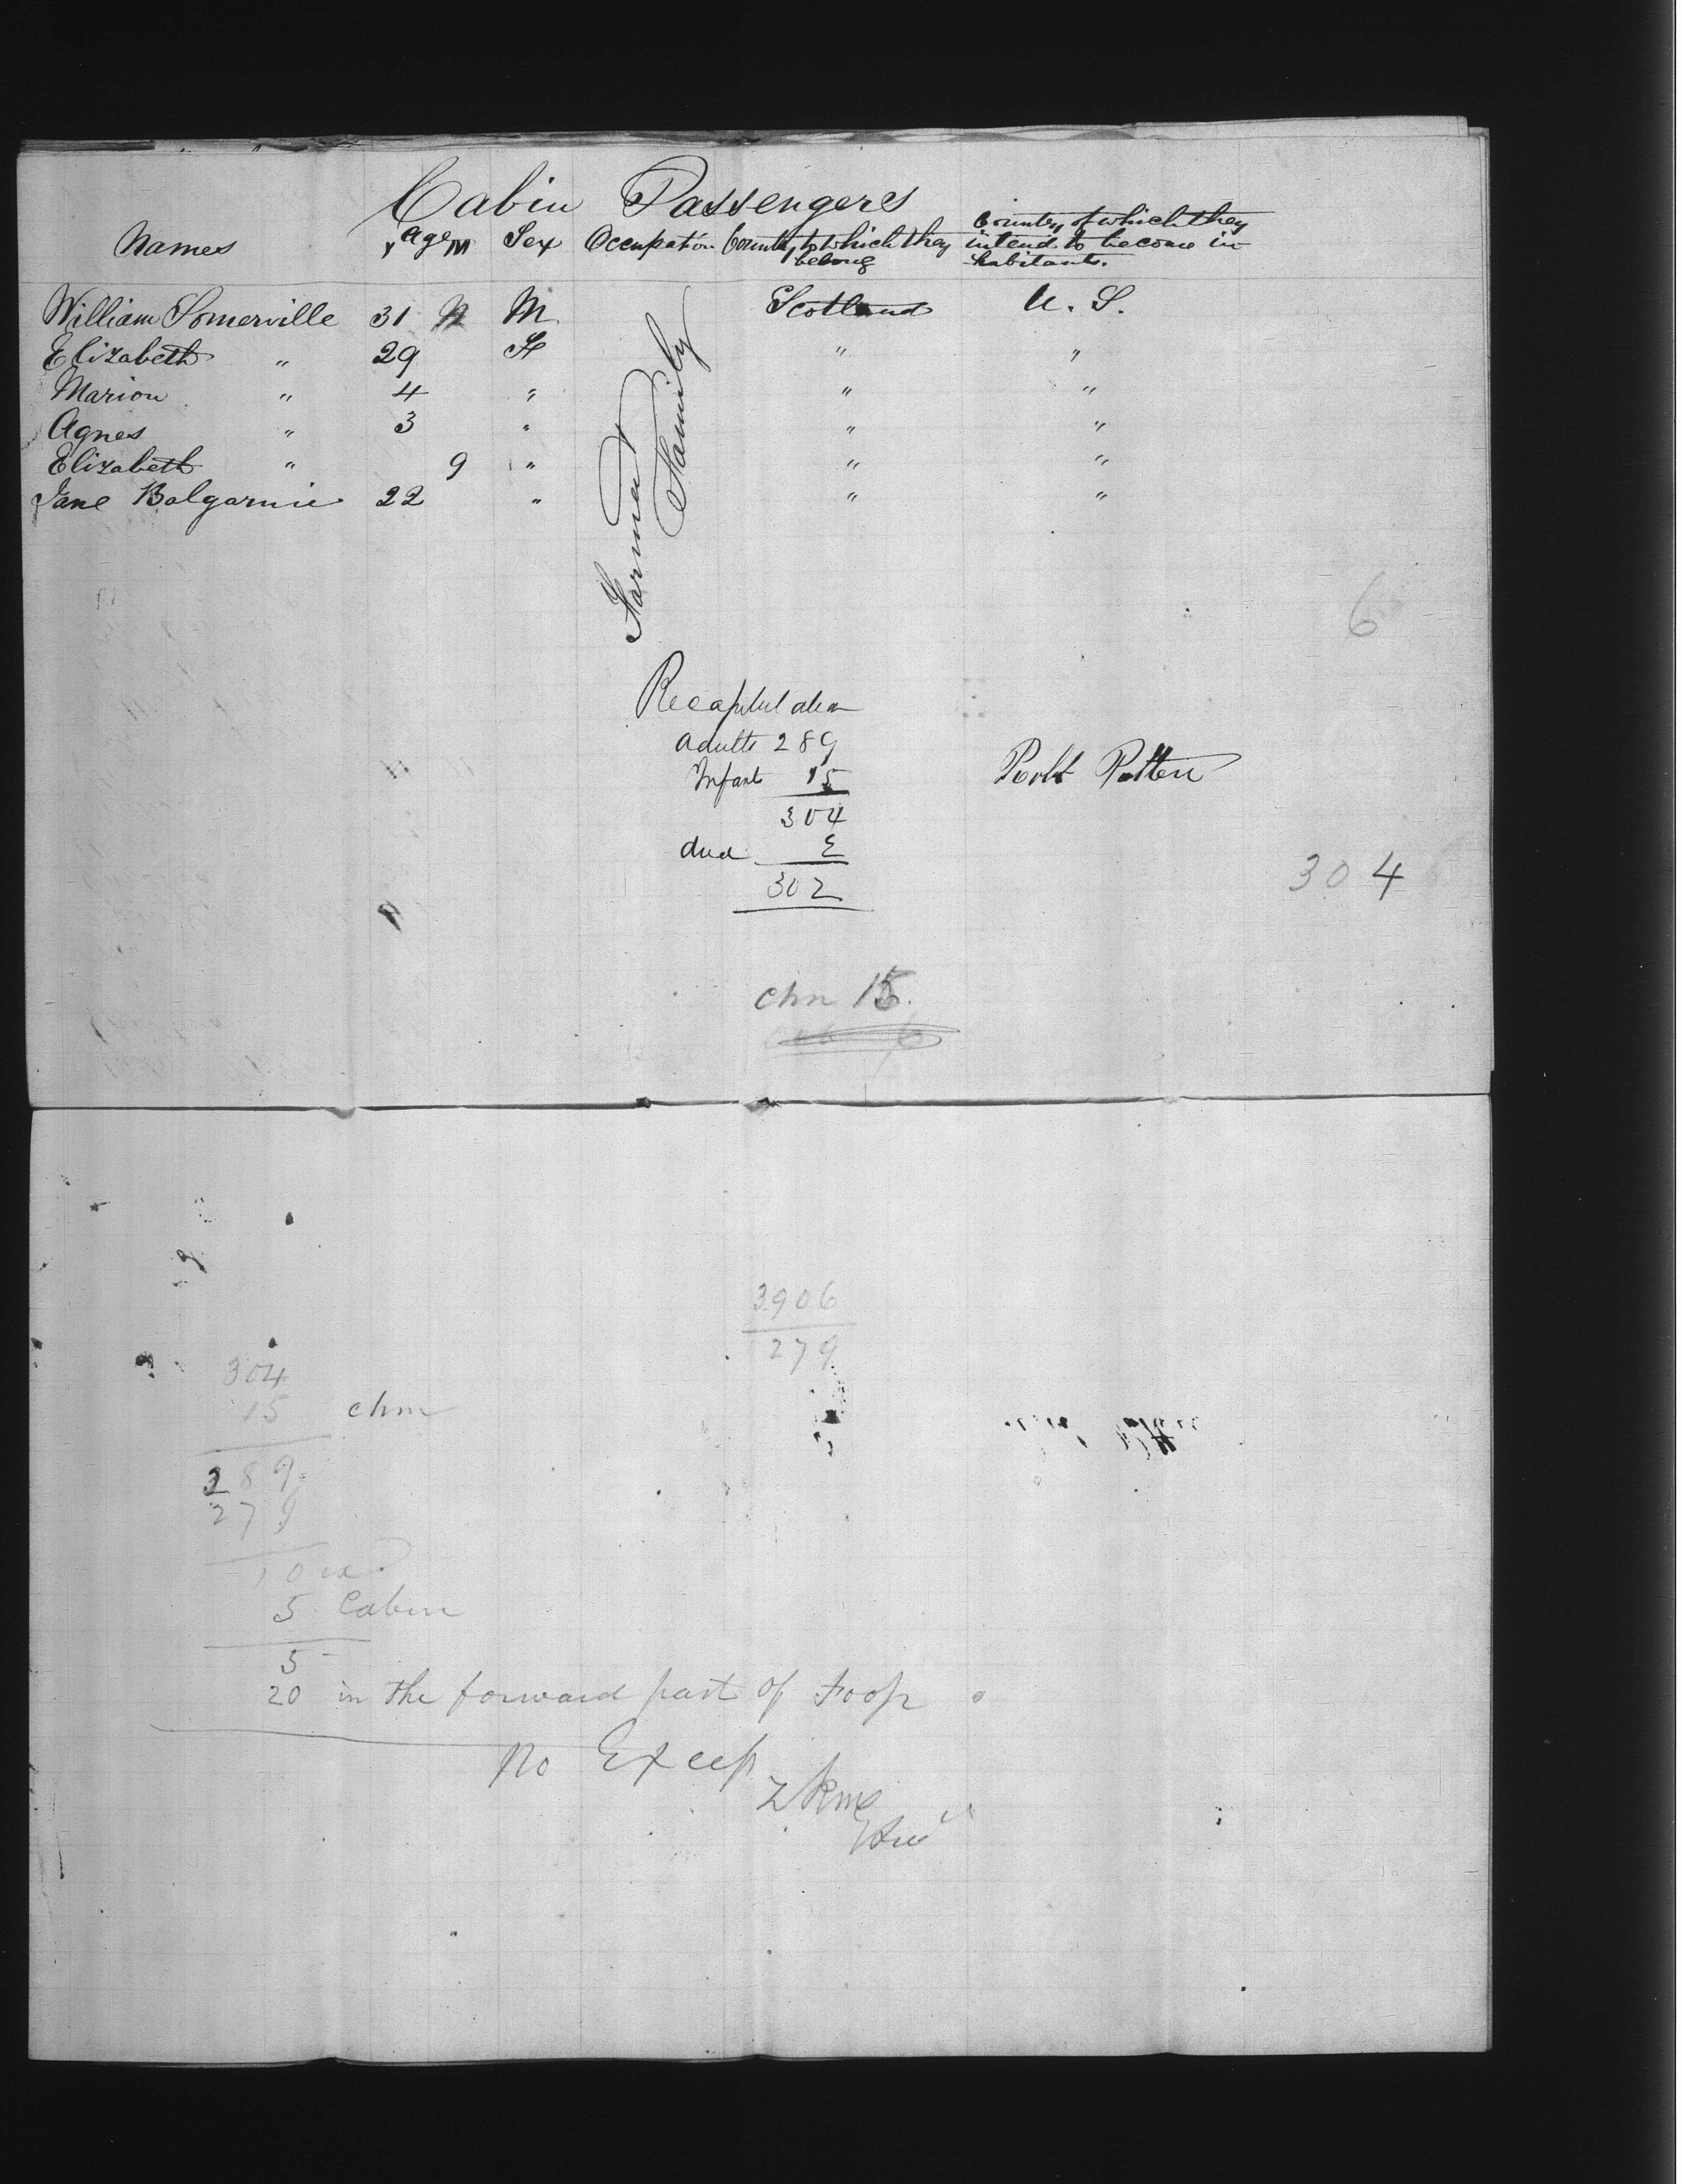 Cabin Passengers
Names Y Age M Sex Occupation Country to which they belong Country of which they intend to become inhabitants.
William Somerville 31 M Scotland U. S.
Elizabeth " 29 F " "
Marion " 4 " " "
Agnes " 3 " " "
Elizabeth " 9 " " "
Jane Balgarnie 22 " " "
Farmer &
Family
6
Recapitulation
Adults 289
Infants 15
304
died 2
302
Robt Patten
304
chn 15.
3906
279
304
15 chn
289
279
10
5 Cabin
5
20 in the forward part of Poop
No Excep